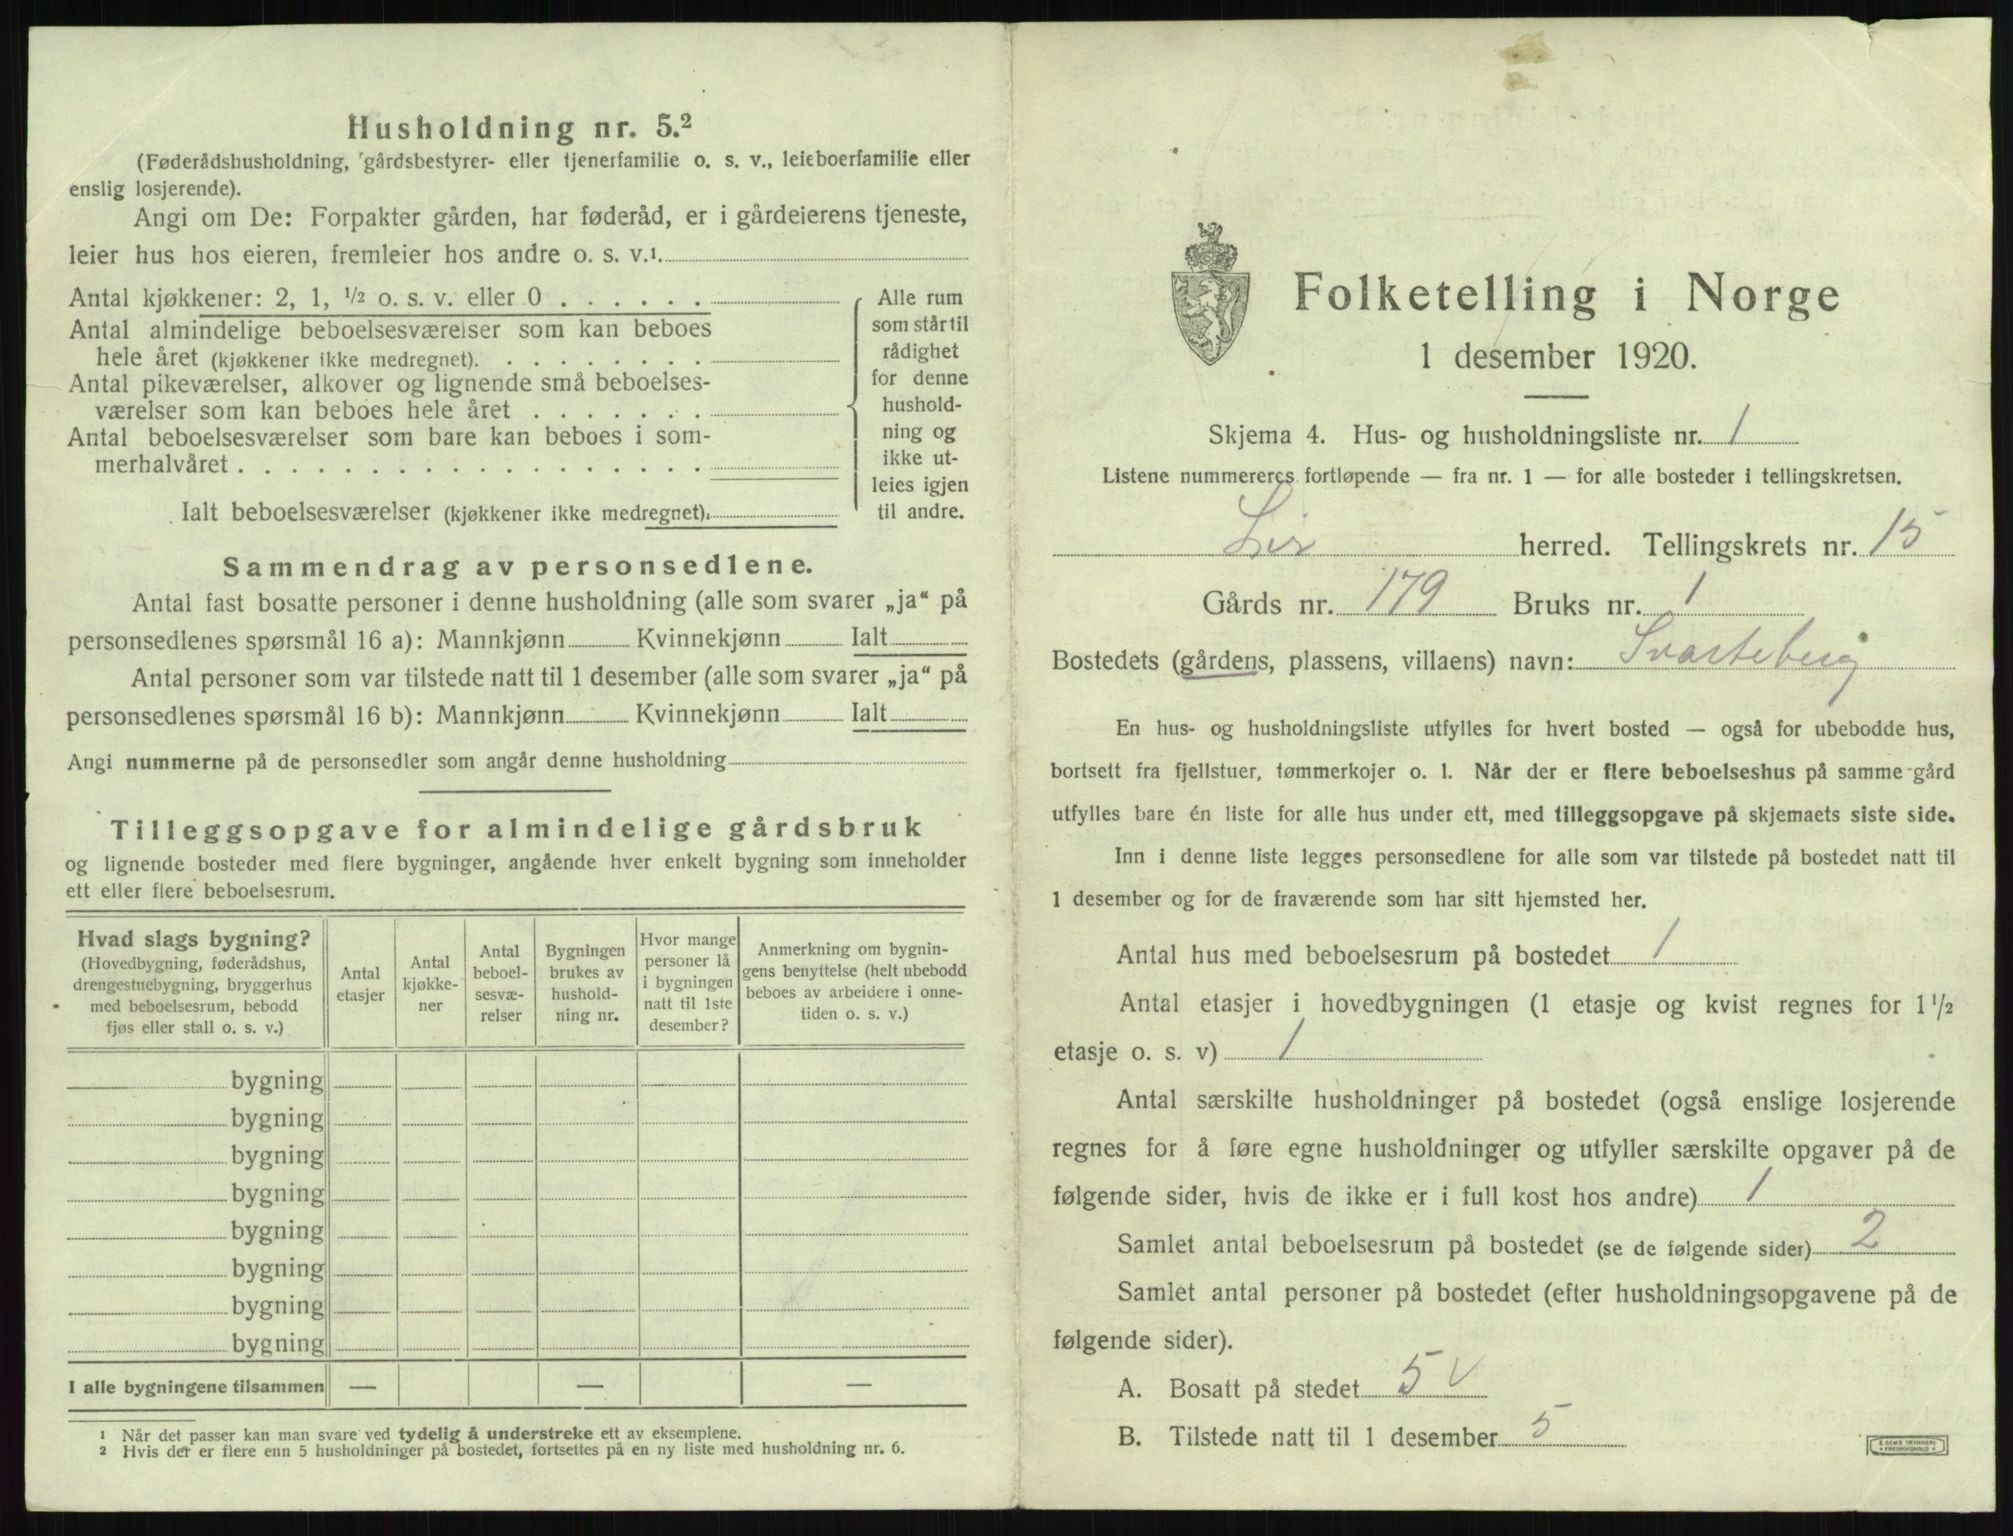 Husholdning nr. 5.²
(Føderådshusholdning, gårdsbestyrer- eller tjenerfamilie o. s. v., leieboerfamilie eller
enslig losjerende).
Angi om De: Forpakter gården, har føderåd, er i gårdeierens tjeneste,
leier hus hos eieren, fremleier hos andre o. s. v.¹
Antal kjøkkener: 2, 1, ½ o. s. v. eller 0 . . . . . .
Antal almindelige beboelsesværelser som kan beboes
hele året (kjøkkener ikke medregnet). . . . . . . . .
Antal pikeværelser, alkover og lignende små beboelses-
værelser som kan beboes hele året . . . . . . .
Antal beboelsesværelser som bare kan beboes i som-
merhalvåret . . . . . . . . . . . . . . . . . .
Ialt beboelsesværelser (kjøkkener ikke medregnet).
Alle rum
som står til
rådighet
for denne
hushold-
ning og
ikke ut-
leies igjen
til andre.
Sammendrag av personsedlene.
Antal fast bosatte personer i denne husholdning (alle som svarer „ja“ på
personsedlenes spørsmål 16 a): Mannkjønn Kvinnekjønn Ialt
Antal personer som var tilstede natt til 1 desember (alle som svarer „ja“ på
personsedlenes spørsmål 16 b): Mannkjønn Kvinnekjønn Ialt
Angi nummerne på de personsedler som angår denne husholdning
Tilleggsopgave for almindelige gårdsbruk
og lignende bosteder med flere bygninger, angående hver enkelt bygning som inneholder
ett eller flere beboelsesrum.
Hvad slags bygning?
(Hovedbygning, føderådshus,
drengestuebygning, bryggerhus
med beboelsesrum, bebodd
fjøs eller stall o. s. v.)
Antal
etasjer
Antal
kjøkke-
ner
Antal
beboel-
sesvæ-
relser
Bygningen
brukes av
hushold-
ning nr.
Hvor mange
personer lå
i bygningen
natt til 1ste
desember?
Anmerkning om bygnin-
gens benyttelse (helt ubebodd
beboes av arbeidere i onne-
tiden o. s. v.)
bygning
bygning
bygning
bygning
bygning
bygning
bygning
bygning
I alle bygningene tilsammen — — —
¹ Når det passer kan man svare ved tydelig å understreke ett av eksemplene.
² Hvis der er flere enn 5 husholdninger på bostedet, fortsettes på en ny liste med husholdning nr. 6.
Folketelling i Norge
1 desember 1920.
Skjema 4. Hus- og husholdningsliste nr. 1
Listene nummereres fortløpende — fra nr. 1 — for alle bosteder i tellingskretsen.
Lier herred. Tellingskrets nr. 15
Gårds nr. 179 Bruks nr. 1
Bostedets (gårdens, plassens, villaens) navn: Svarteberg
En hus- og husholdningsliste utfylles for hvert bosted — også for ubebodde hus,
bortsett fra fjellstuer, tømmerkojer o. l. Når der er flere beboelseshus på samme gård
utfylles bare én liste for alle hus under ett, med tilleggsopgave på skjemaets siste side.
Inn i denne liste legges personsedlene for alle som var tilstede på bostedet natt til
1 desember og for de fraværende som har sitt hjemsted her.
Antal hus med beboelsesrum på bostedet 1
Antal etasjer i hovedbygningen (1 etasje og kvist regnes for 1½
etasje o. s. v) 1
Antal særskilte husholdninger på bostedet (også enslige losjerende
regnes for å føre egne husholdninger og utfyller særskilte opgaver på de
følgende sider, hvis de ikke er i full kost hos andre) 1
Samlet antal beboelsesrum på bostedet (se de følgende sider) 2
Samlet antal personer på bostedet (efter husholdningsopgavene på de
følgende sider).
A. Bosatt på stedet 5 v
B. Tilstede natt til 1 desember 5
E. SEM'S TRYKKERI
FREDRIKSHALD